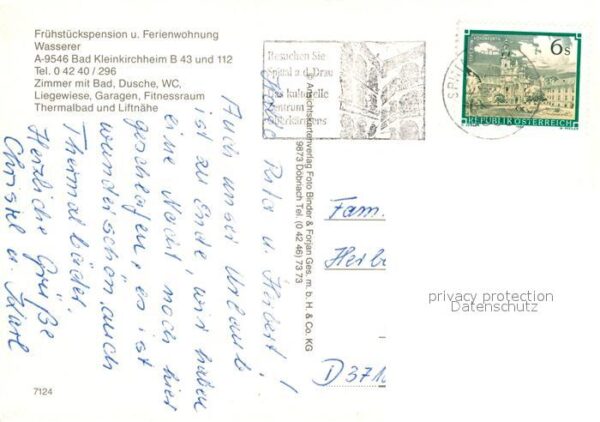 Frühstückspension u. Ferienwohnung
Wasserer
A-9546 Bad Kleinkirchheim B 43 und 112
Tel. 0 42 40 / 296
Zimmer mit Bad, Dusche, WC,
Liegewiese, Garagen, Fitnessraum
Thermalbad und Liftnähe
Besuchen Sie
Spittal a.d. Drau
Das kulturelle
Zentrum
Oberkärntens
6 S
REPUBLIK ÖSTERREICH
u. Herbert!
Auch unser Urlaub
ist zu Ende, wir haben
eine Nacht noch hier
geschlafen, es ist
wunderschön, auch
Thermalbäder.
Herzliche Grüße
Christl u. Karl
© Ansichtskartenverlag Foto Binder & Forjan Ges. m. b. H. & Co. KG
9873 Döbriach Tel. (0 42 46) 73 73
Fam.
Herbe
D 371
privacy protection
Datenschutz
7124